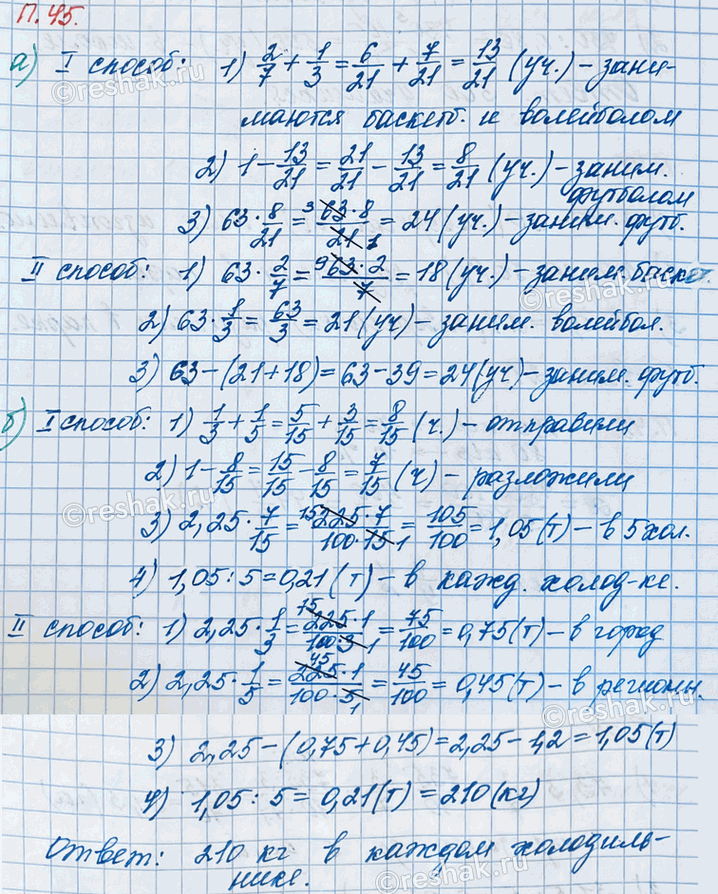 П.45.
а) I способ: 1) 2/7 + 1/3 = 6/21 + 7/21 = 13/21 (уч.) – зани-
маются баскетб. и волейболом
2) 1 – 13/21 = 21/21 – 13/21 = 8/21 (уч.) – заним.
футболом
3) 63 · 8/21 = 3 63 · 8 / 21 1 = 24 (уч.) – заним. футб.
II способ: 1) 63 · 2/7 = 9 63 · 2 / 7 = 18 (уч.) – заним. баскет.
2) 63 · 1/3 = 63/3 = 21 (уч) – заним. волейбол.
3) 63 – (21 + 18) = 63 – 39 = 24 (уч) – заним. футб.
б) I способ: 1) 1/3 + 1/5 = 5/15 + 3/15 = 8/15 (ч.) – отправили
2) 1 – 8/15 = 15/15 – 8/15 = 7/15 (ч) – разложили
3) 2,25 · 7/15 = 15 225 · 7 / 100 · 15 1 = 105/100 = 1,05 (т) – в 5 хол.
4) 1,05 : 5 = 0,21 (т) – в кажд. холод-ке.
II способ: 1) 2,25 · 1/3 = 15 225 · 1 / 100 · 3 1 = 75/100 = 0,75 (т) – в город
2) 2,25 · 1/5 = 45 225 · 1 / 100 · 5 1 = 45/100 = 0,45 (т) – в регионы.
3) 2,25 – (0,75 + 0,45) = 2,25 – 1,2 = 1,05 (т)
4) 1,05 : 5 = 0,21 (т) = 210 (кг)
Ответ: 210 кг в каждом холодиль-
нике.
©reshak.ru
©reshak.ru
©reshak.ru
©reshak.ru
©reshak.ru
©reshak.ru
©reshak.ru